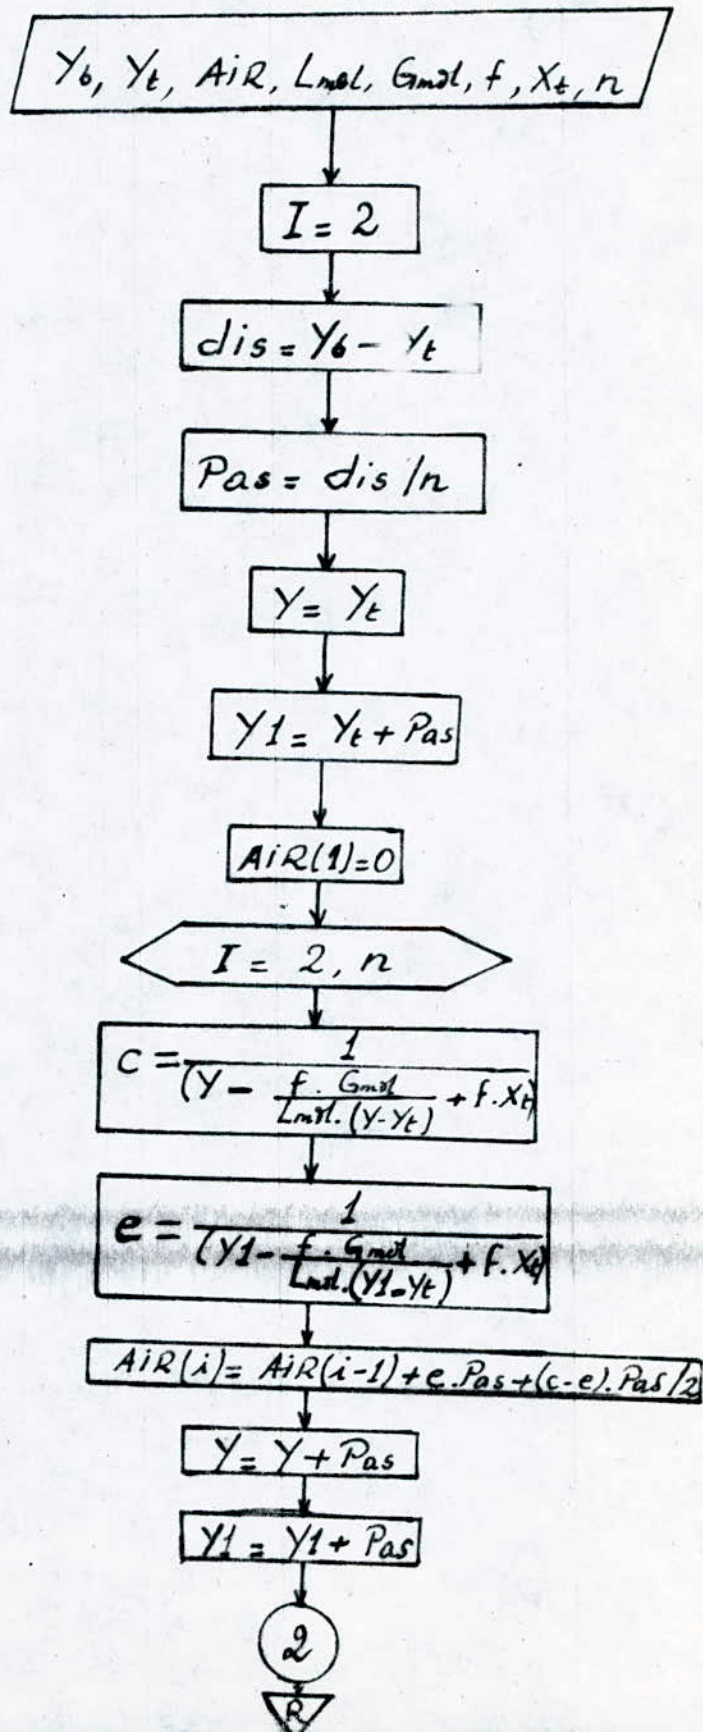 Yb, Yt, AiR, Lmol, Gmol, f, Xt, n
I = 2
dis = Yb - Yt
Pas = dis/n
Y = Yt
Y1 = Yt + Pas
AiR(1)=0
I = 2, n
c = 1
(Y - f . Gmol + f.Xt)
Lmol.(Y-Yt)
e = 1
(Y1 - f . Gmol + f.Xt)
Lmol.(Y1-Yt)
AiR(i)= AiR(i-1)+e.Pas+(c-e).Pas/2
Y = Y + Pas
Y1 = Y1 + Pas
2
R